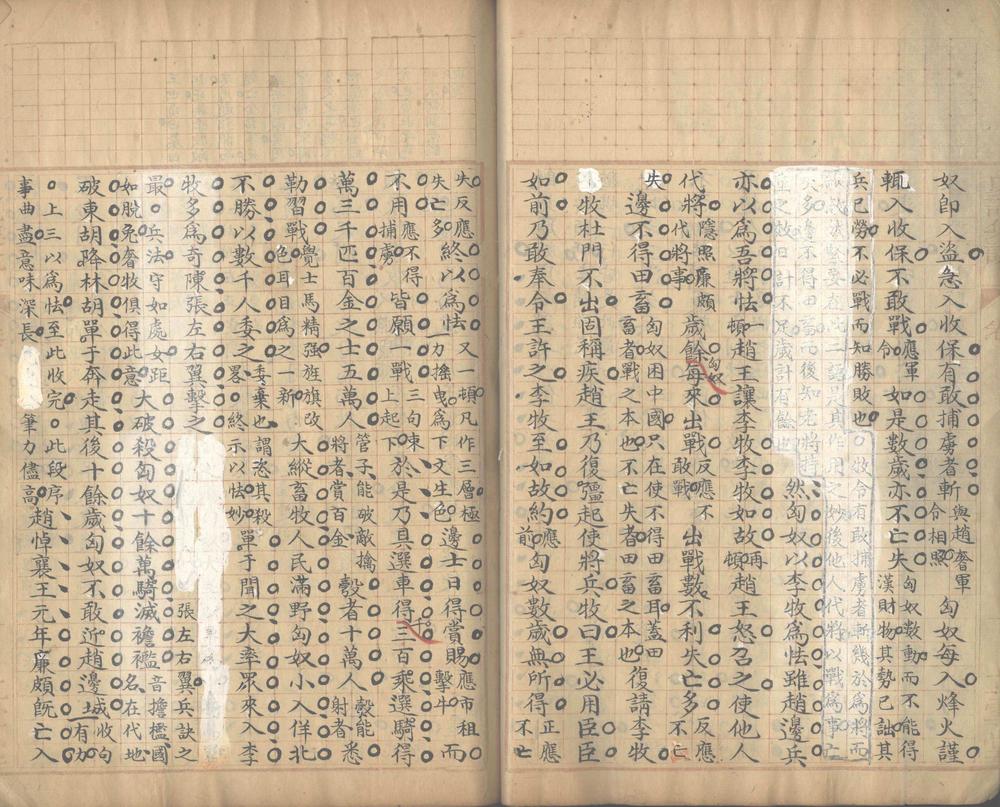 奴卽入盜急入收保有敢捕虜者斬與趙奢軍令相照匈奴每入烽火謹
輒入收保不敢戰應軍令如是數歲亦不亡失匈奴數動而不能得漢財物其勢已詘其
兵已勞不必戰而知勝敗也○牧令有敢捕虜者斬幾於爲將而堅要在此二語是真作用之妙後他人代將以戰爲事亡
失多邊不得田畜而後知老將持重之效日計不足歲計有餘也然匈奴以李牧爲怯雖趙邊兵
亦以爲吾將怯一頓趙王讓李牧李牧如故再頓趙王怒召之使他人
代將隱照廉頗代將事歲餘匈奴每來出戰反應不敢戰出戰數不利失亡多反應不亡
失邊不得田畜匈奴困中國只在使不得田畜耳蓋田畜者戰之本也不亡失者田畜之本也復請李牧
牧杜門不出固稱疾趙王乃復彊起使將兵牧曰王必用臣臣
如前乃敢奉令王許之李牧至如故約應前匈奴數歲無所得正應不亡
失反應失亡多終以爲怯又一頓凡作三層極力擒曳爲下文生色邊士日得賞賜應市租擊牛而
不用應不得捕虜皆願一戰三句束上起下於是乃具選車得三百乘選騎得
萬三千匹百金之士五萬人管子能破敵擒將者賞百金彀者十萬人彀能射者悉
勒習戰覺士馬精强旌旗改色耳目爲之一新大縱畜牧人民滿野匈奴小入佯北
不勝以數千人委之委棄也謂恣其殺畧○終示以怯妙單于聞之大率衆來入李
牧多爲奇陳張左右翼擊之張左右翼兵訣之
最○兵法守如處女距如脫免奢牧俱得此意大破殺匈奴十餘萬騎滅襜襤音擔檻國名在代地
破東胡降林胡單于奔走其後十餘歲匈奴不敢近趙邊城收句有力
○上三以爲怯至此收完○此段序事曲盡意味深長筆力儘高趙悼襄王元年廉頗既亡入